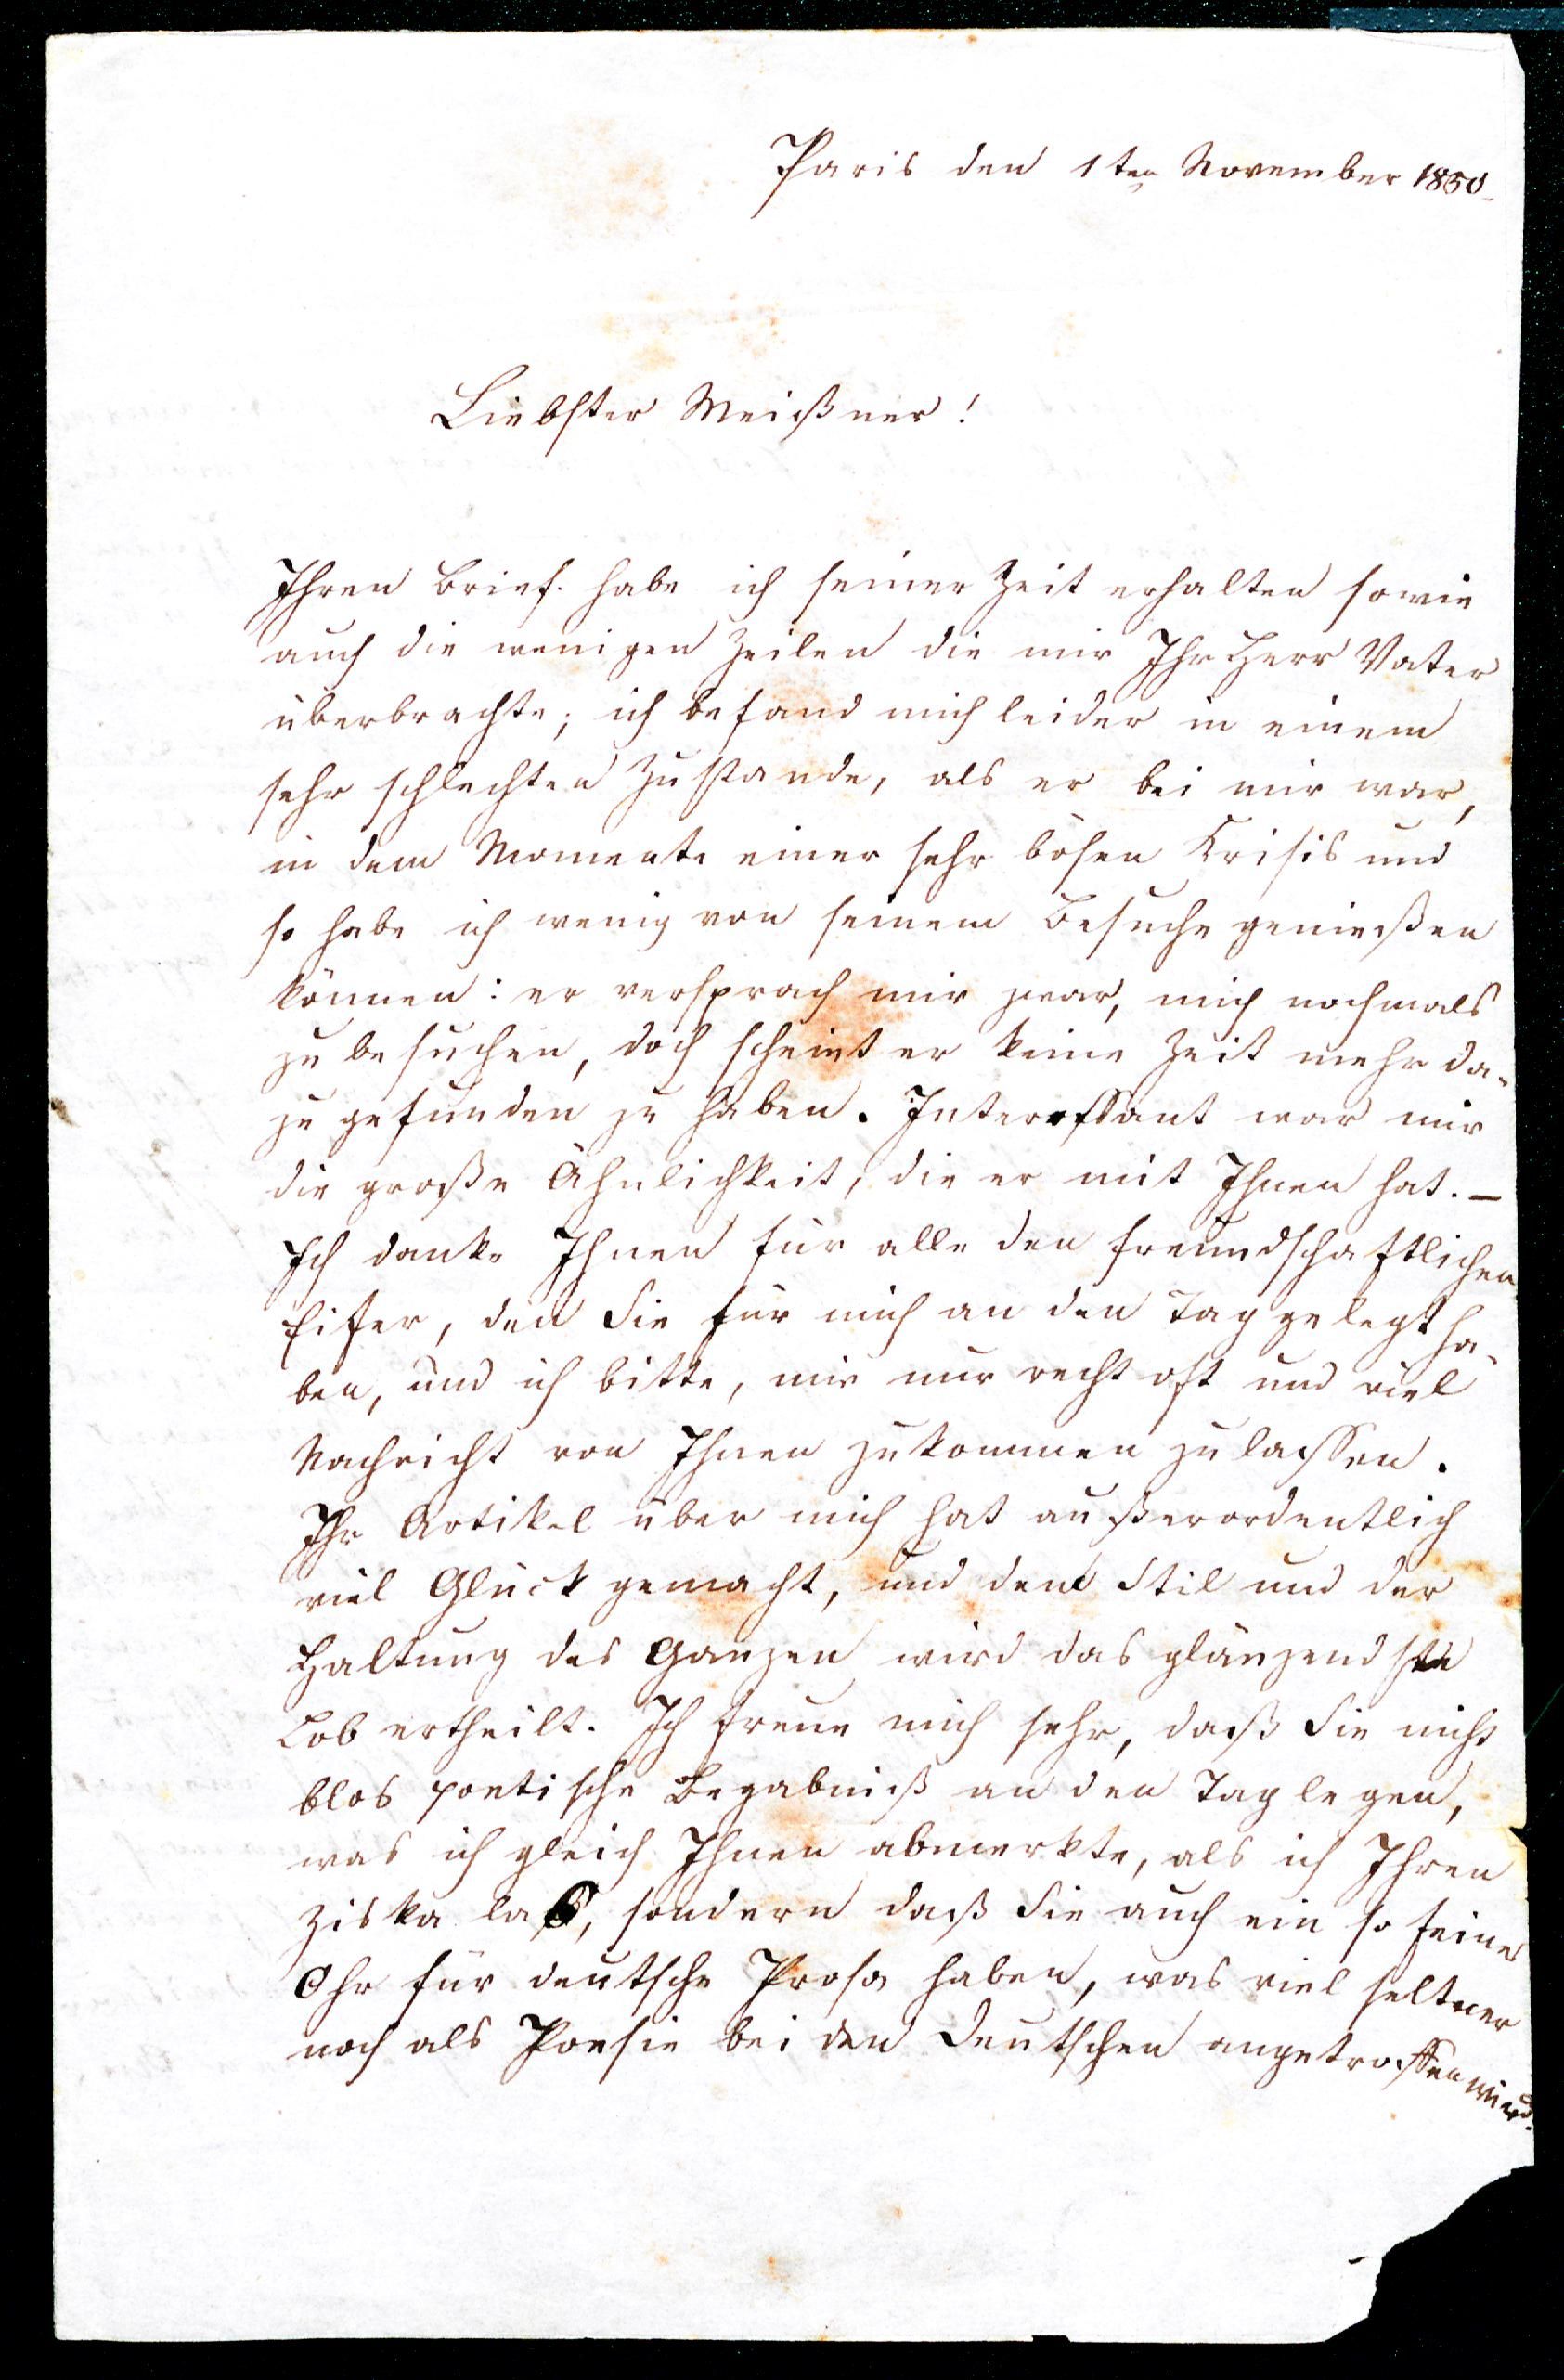 Paris den 1ten November 1850.
Liebster Meißner!
Ihren Brief habe ich seiner Zeit erhalten sowie
auch die wenigen Zeilen die mir Ihr Herr Vater
überbrachte; ich befand mich leider in einem
sehr schlechten Zustande, als er bei mir war,
in dem Momente einer sehr bösen Krisis und
so habe ich wenig von seinem Besuche genießen
können: er versprach mir zwar, mich nochmals
zu besuchen, doch scheint er keine Zeit mehr da-
zu gefunden zu haben. Interessant war mir
die große Ähnlichkeit, die er mit Ihnen hat. –
Ich danke Ihnen für alle den freundschaftlichen
Eifer, den Sie für mich an den Tag gelegt ha-
ben, und ich bitte, mir nur recht oft und viel
Nachricht von Ihnen zukommen zu lassen.
Ihr Artikel über mich hat außerordentlich
viel Glück gemacht, und dem Stil und der
Haltung des Ganzen wird das glänzendste
Lob ertheilt. Ich freue mich sehr, daß Sie nicht
blos poetische Begabniß an den Tag legen,
was ich gleich Ihnen abmerkte, als ich Ihren
Ziska las, sondern daß Sie auch ein so feines
Ohr für deutsche Prosa haben, was viel seltner
noch als Poesie bei den Deutschen angetroffen wird.